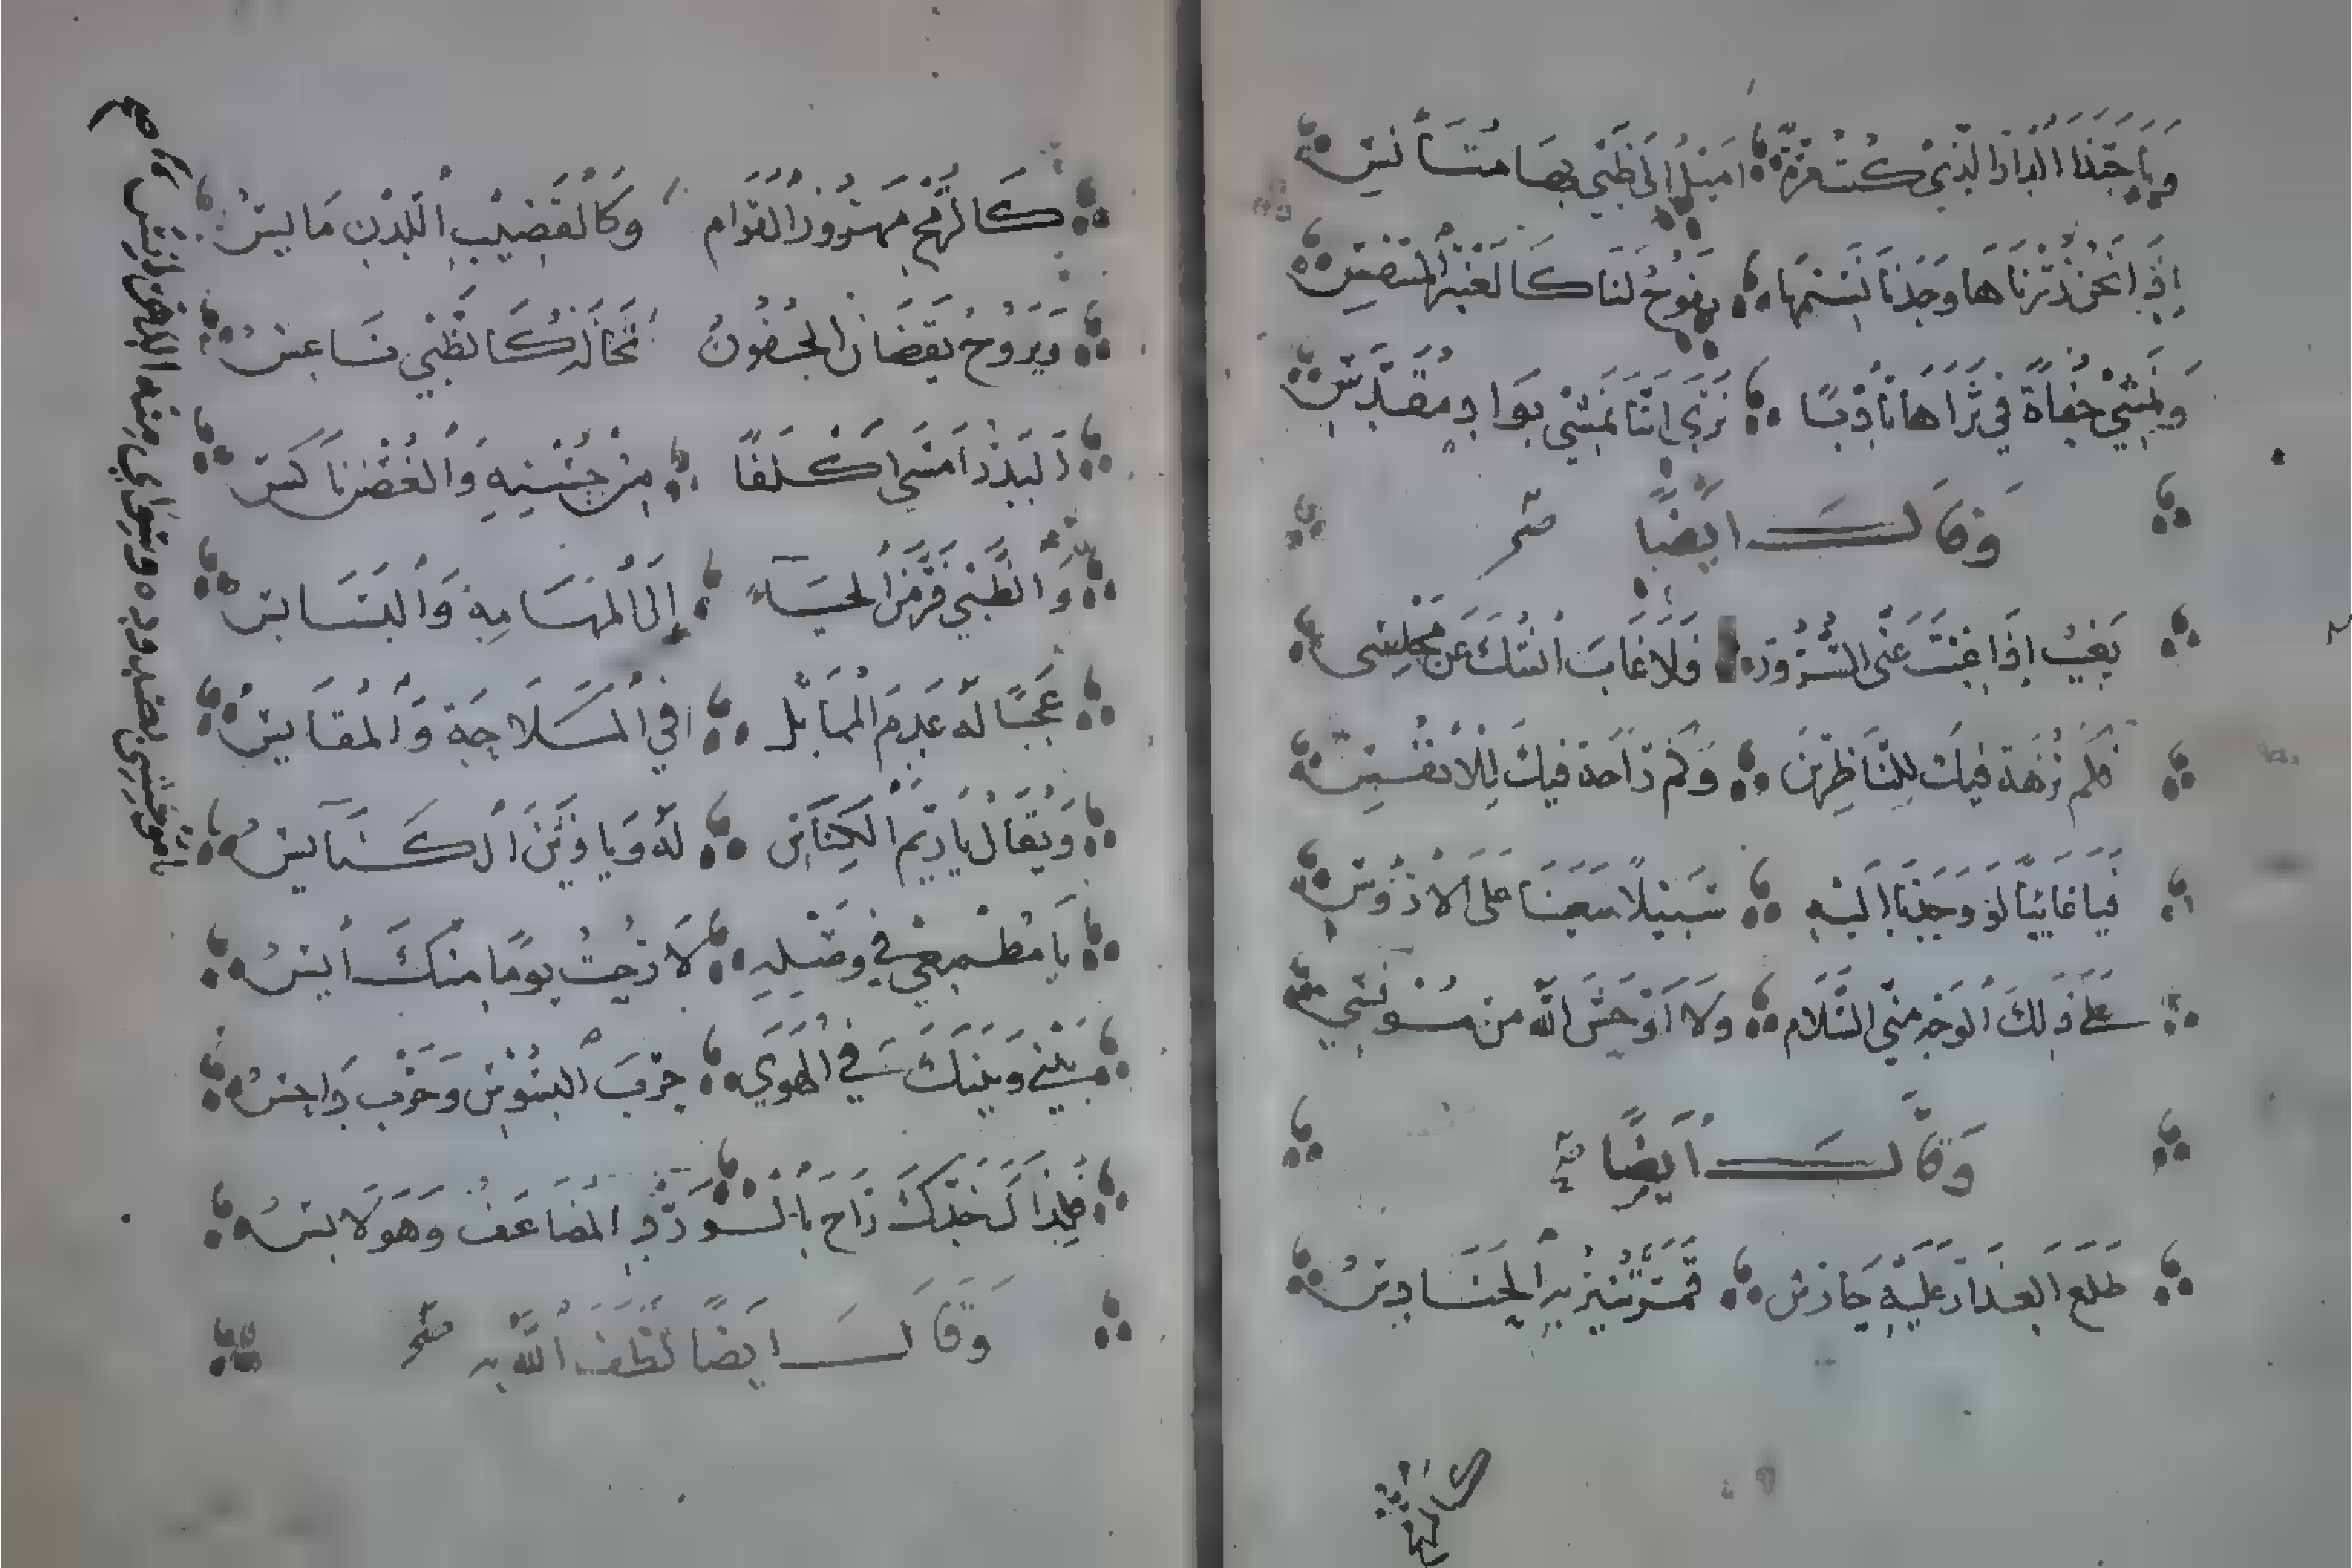 وَيَا حَبَّذَا الدَّارُ الَّذِي كُنْتُ مَرَّةً اَمِيْلُ اِلَى ظَبْيٍ بِهَا مُتَأَنِّسِ
إِذَا نَحْنُ زُرْنَاهَا وَجَدْنَا نَسِيْمَهَا يَفُوْحُ لَنَا كَالْعَنْبَرِ الْمُتَنَفِّسِ
وَنَمْشِيْ حُفَاةً فِي ثَرَاهَا تَأَدُّبًا نَرَى اَنَّنَا نَمْشِيْ بِوَادٍ مُقَدَّسِ
وَقَالَ اَيْضًا
يَغِيْبُ اِذَا غِبْتَ عَنِّي السُّرُوْرُ فَلَا غَابَ اُنْسُكَ عَنْ مَجْلِسِي
فَكَمْ نُزْهَةٍ فِيكَ لِلنَّاظِرِيْنَ وَكَمْ رَاحَةٍ فِيكَ لِلْأَنْفُسِ
فَيَا غَائِبًا لَوْ وَجَدْنَا اِلَيْهِ سَبِيْلًا سَعَيْنَا عَلَى الْاَرْؤُسِ
عَلَى ذَلِكَ الْوَجْهِ مِنِّي السَّلَام وَلَا اَوْحَشَ اللّٰهُ مِنْ مُوْنِسِيْ
وَقَالَ اَيْضًا
طَلَعَ الْعِذَارُ عَلَيْهِ حَارِسْ قَمَرٌ تُنِيْرُ بِهِ الْحَنَادِسْ
كَالرُّمْحِ
كَالرُّمْحِ مَهْزُوزُ الْقَوَام وَكَالْقَضِيْبِ اللَّدْنِ مَايِسْ
وَيَرُوْحُ يَقْضَانَ الْجُفُوْنِ تَخَالُهُ كَالظَّبْيِ نَاعِسْ
اَلْبَدْرُ اَمْسَى اَكْلَفًا مِنْ حُسْنِهِ وَالْغُصْنُ نَاكِسْ
وَالظَّبْيُ فَرَّ مِنَ الْحَيَاءِ إِلَى الْمَهَامِهِ وَالْبَسَابِسْ
عَجَبًا لَهُ عَدِمَ الْمُمَاثِلَ فِي الْمَلَاحَةِ وَالْمُقَايِسْ
وَيُقَالُ يَا رِيْمَ الْكِنَاسِ لَهُ وَيَا وَثَنَ الْكَنَايِسْ
يَا مُطْمِعِي فِي وَصْلِهِ لَا رُحْتُ يَوْمًا مِنْكَ اٰيِسْ
بَيْنِي وَبَيْنَكَ فِي الْهَوَى حَرْبَ الْبَسُوْسِ وَحَرْبَ دَاحِسْ
فَلِذَاكَ خَدُّكَ رَاحَ بِالزَّرَدِ الْمُضَاعَفِ وَهُوَ لَابِسْ
وَقَالَ اَيْضًا لَطَفَ اللّٰهُ بِهِ